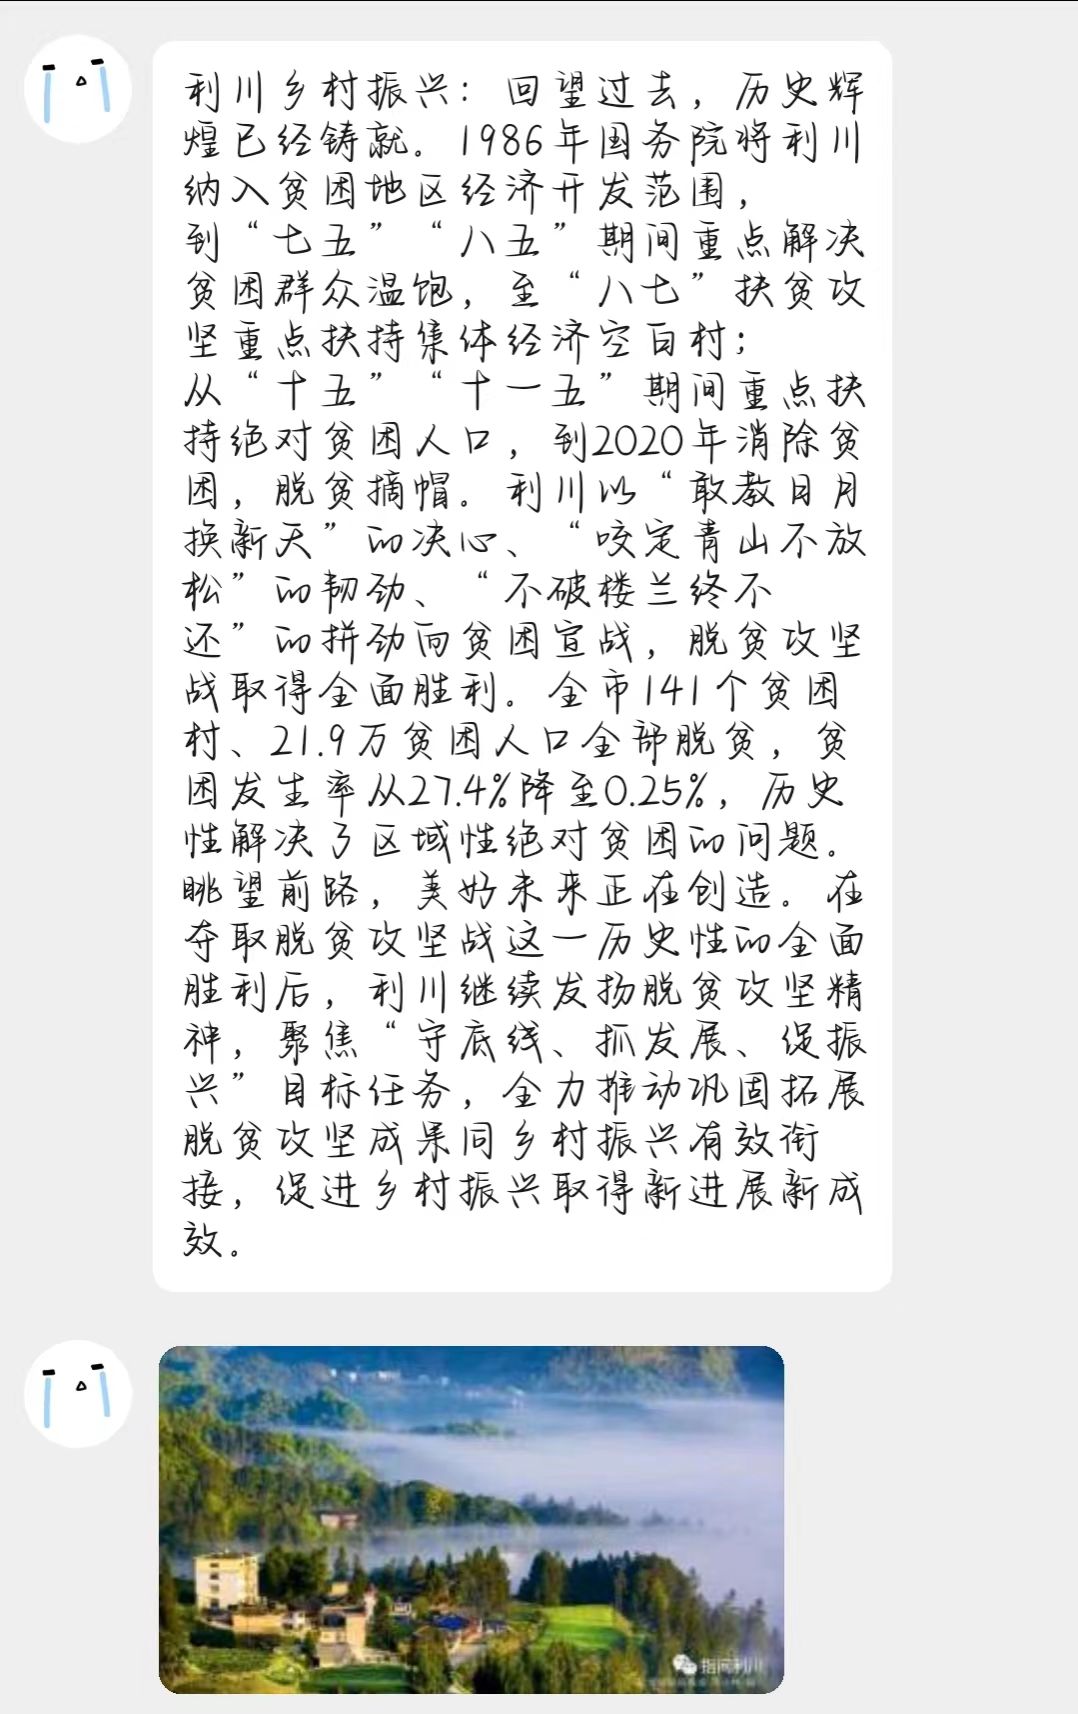 利川乡村振兴：回望过去，历史辉
煌已经铸就。1986年国务院将利川
纳入贫困地区经济开发范围，
到“七五”“八五”期间重点解决
贫困群众温饱，至“八七”扶贫攻
坚重点扶持集体经济空白村；
从“十五”“十一五”期间重点扶
持绝对贫困人口，到2020年消除贫
困，脱贫摘帽。利川以“敢教日月
换新天”的决心、“咬定青山不放
松”的韧劲、“不破楼兰终不
还”的拼劲向贫困宣战，脱贫攻坚
战取得全面胜利。全市141个贫困
村、21.9万贫困人口全部脱贫，贫
困发生率从27.4%降至0.25%，历史
性解决了区域性绝对贫困的问题。
眺望前路，美好未来正在创造。在
夺取脱贫攻坚战这一历史性的全面
胜利后，利川继续发扬脱贫攻坚精
神，聚焦“守底线、抓发展、促振
兴”目标任务，全力推动巩固拓展
脱贫攻坚成果同乡村振兴有效衔
接，促进乡村振兴取得新进展新成
效。